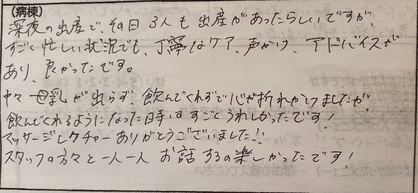 (病棟)
深夜の出産で、その日3人も出産があったらしいですが、
すごく忙しい状況でも、丁寧なケア、声かけ、アドバイスが
あり、良かったです。
中々母乳が出らず、飲んでくれずで心が折れかけましたが
飲んでくれるようになった時はすごくうれしかったです!
マッサージレクチャーありがとうございました!!
スタッフの方々と一人一人お話するの楽しかったです!